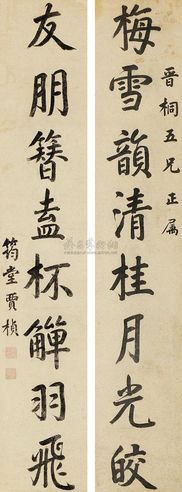 晋桐五兄正属
梅雪韻清桂月光皎
友朋簪盍杯觶羽飛
筠堂賈楨